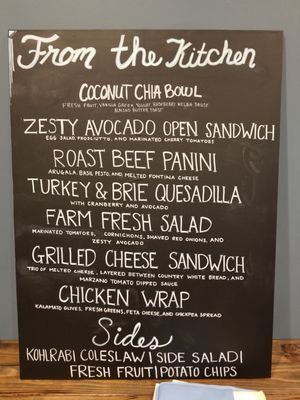 From the Kitchen
COCONUT CHIA BOWL
FRESH FRUIT, VANILLA GREEK YOGURT, RASPBERRY MELBA SAUCE
ALMOND BUTTER TOAST
ZESTY AVOCADO OPEN SANDWICH
EGG SALAD, PROSCIUTTO, AND MARINATED CHERRY TOMATOES
ROAST BEEF PANINI
ARUGALA, BASIL PESTO, AND MELTED FONTINA CHEESE
TURKEY & BRIE QUESADILLA
WITH CRANBERRY AND AVOCADO
FARM FRESH SALAD
MARINATED TOMATOES, CORNICHONS, SHAVED RED ONIONS, AND
ZESTY AVOCADO
GRILLED CHEESE SANDWICH
TRIO OF MELTED CHEESE, LAYERED BETWEEN COUNTRY WHITE BREAD, AND
MARZANO TOMATO DIPPED SAUCE
CHICKEN WRAP
KALAMATO OLIVES, FRESH GREENS, FETA CHEESE, AND CHICKPEA SPREAD
Sides
KOHLRABI COLESLAW | SIDE SALAD |
FRESH FRUIT | POTATO CHIPS